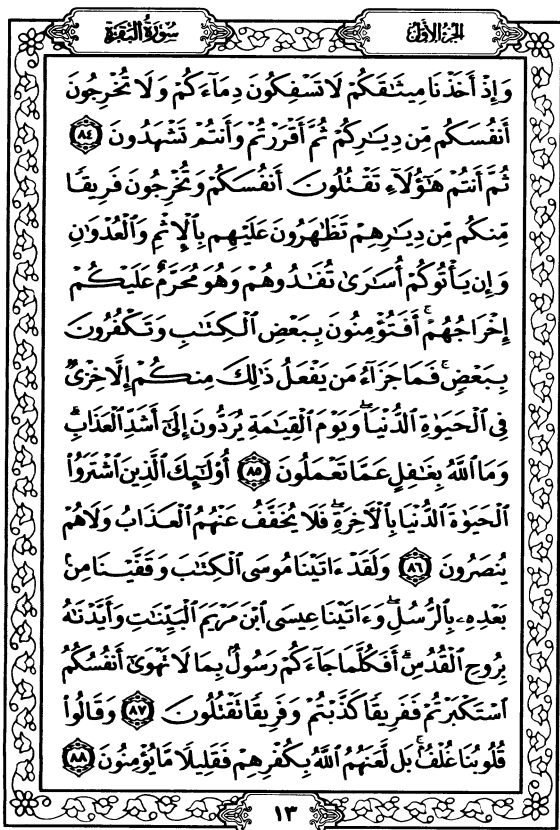 الجزء الأول
سورة البقرة
وَإِذْ أَخَذْنَا مِيثَٰقَكُمْ لَا تَسْفِكُونَ دِمَآءَكُمْ وَلَا تُخْرِجُونَ
أَنفُسَكُم مِّن دِيَٰرِكُمْ ثُمَّ أَقْرَرْتُمْ وَأَنتُمْ تَشْهَدُونَ ٨٤
ثُمَّ أَنتُمْ هَٰٓؤُلَآءِ تَقْتُلُونَ أَنفُسَكُمْ وَتُخْرِجُونَ فَرِيقًا
مِّنكُم مِّن دِيَٰرِهِمْ تَظَٰهَرُونَ عَلَيْهِم بِٱلْإِثْمِ وَٱلْعُدْوَٰنِ
وَإِن يَأْتُوكُمْ أُسَٰرَىٰ تُفَٰدُوهُمْ وَهُوَ مُحَرَّمٌ عَلَيْكُمْ
إِخْرَاجُهُمْ ۚ أَفَتُؤْمِنُونَ بِبَعْضِ ٱلْكِتَٰبِ وَتَكْفُرُونَ
بِبَعْضٍ ۚ فَمَا جَزَآءُ مَن يَفْعَلُ ذَٰلِكَ مِنكُمْ إِلَّا خِزْىٌ
فِى ٱلْحَيَوٰةِ ٱلدُّنْيَا ۖ وَيَوْمَ ٱلْقِيَٰمَةِ يُرَدُّونَ إِلَىٰٓ أَشَدِّ ٱلْعَذَابِ ۗ
وَمَا ٱللَّهُ بِغَٰفِلٍ عَمَّا تَعْمَلُونَ ٨٥ أُو۟لَٰٓئِكَ ٱلَّذِينَ ٱشْتَرَوُا۟
ٱلْحَيَوٰةَ ٱلدُّنْيَا بِٱلْأٓخِرَةِ ۖ فَلَا يُخَفَّفُ عَنْهُمُ ٱلْعَذَابُ وَلَا هُمْ
يُنصَرُونَ ٨٦ وَلَقَدْ ءَاتَيْنَا مُوسَى ٱلْكِتَٰبَ وَقَفَّيْنَا مِنۢ
بَعْدِهِۦ بِٱلرُّسُلِ ۖ وَءَاتَيْنَا عِيسَى ٱبْنَ مَرْيَمَ ٱلْبَيِّنَٰتِ وَأَيَّدْنَٰهُ
بِرُوحِ ٱلْقُدُسِ ۗ أَفَكُلَّمَا جَآءَكُمْ رَسُولٌۢ بِمَا لَا تَهْوَىٰٓ أَنفُسُكُمُ
ٱسْتَكْبَرْتُمْ فَفَرِيقًا كَذَّبْتُمْ وَفَرِيقًا تَقْتُلُونَ ٨٧ وَقَالُوا۟
قُلُوبُنَا غُلْفٌۢ ۚ بَل لَّعَنَهُمُ ٱللَّهُ بِكُفْرِهِمْ فَقَلِيلًا مَّا يُؤْمِنُونَ ٨٨
١٣